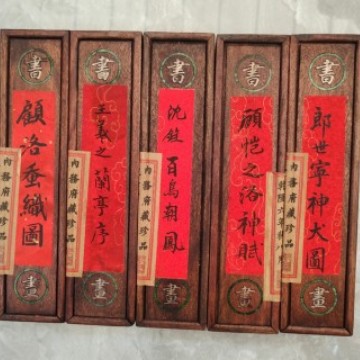 書
顧洛蚕織圖
内務府藏珍品
畫
書
王羲之蘭亭序
内務府藏珍品
畫
書
沈銓百鳥朝鳳
内務府藏珍品
畫
書
顧恺之洛神賦
畫
書
郎世寧神犬圖
内務府藏珍品
乾隆六年
畫